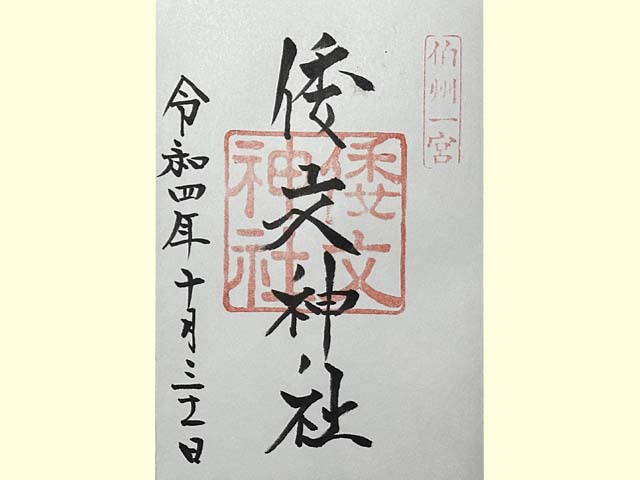 伯州一宮
倭文神社
倭文神社
令和四年十月三十一日